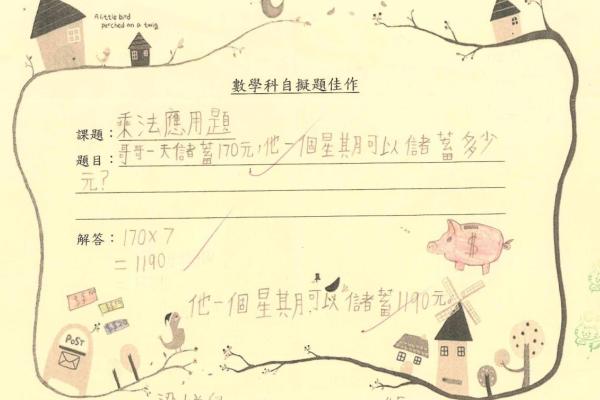 A little bird
perched on a twig
數學科自擬題佳作
課題：乘法應用題
題目：哥哥一天儲蓄170元，他一個星期可以儲蓄多少
元？
解答：170×7
= 1190
$
他一個星期可以儲蓄1190元。
POST